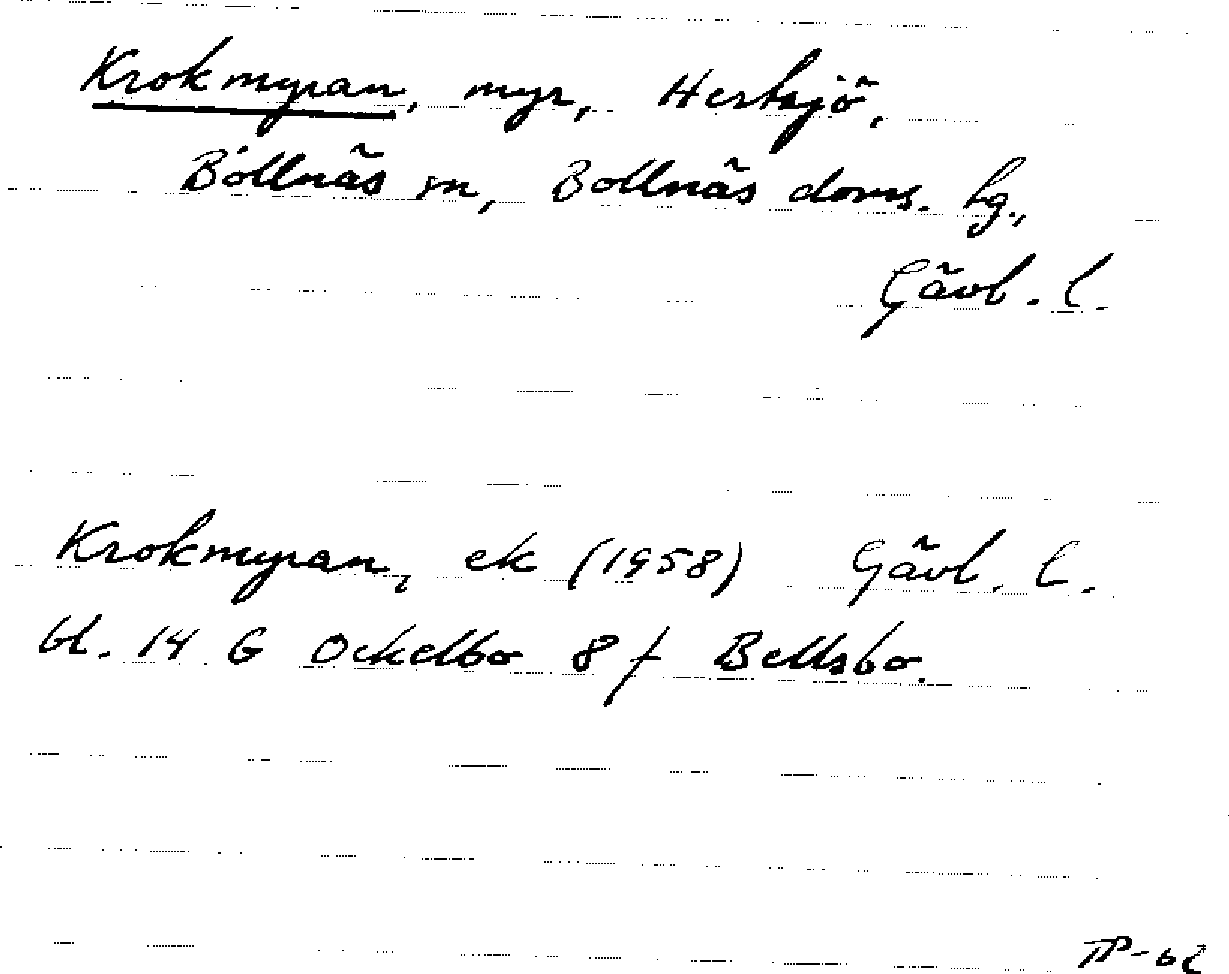 Krokmyran, myr, Hertsjö,
Bollnäs sn, Bollnäs doms. hg.,
Gävl. l.
Krokmyran, ek (1958) Gävl. l.
bl. 14 G Ockelbo 8 f Bellsbo.
-62